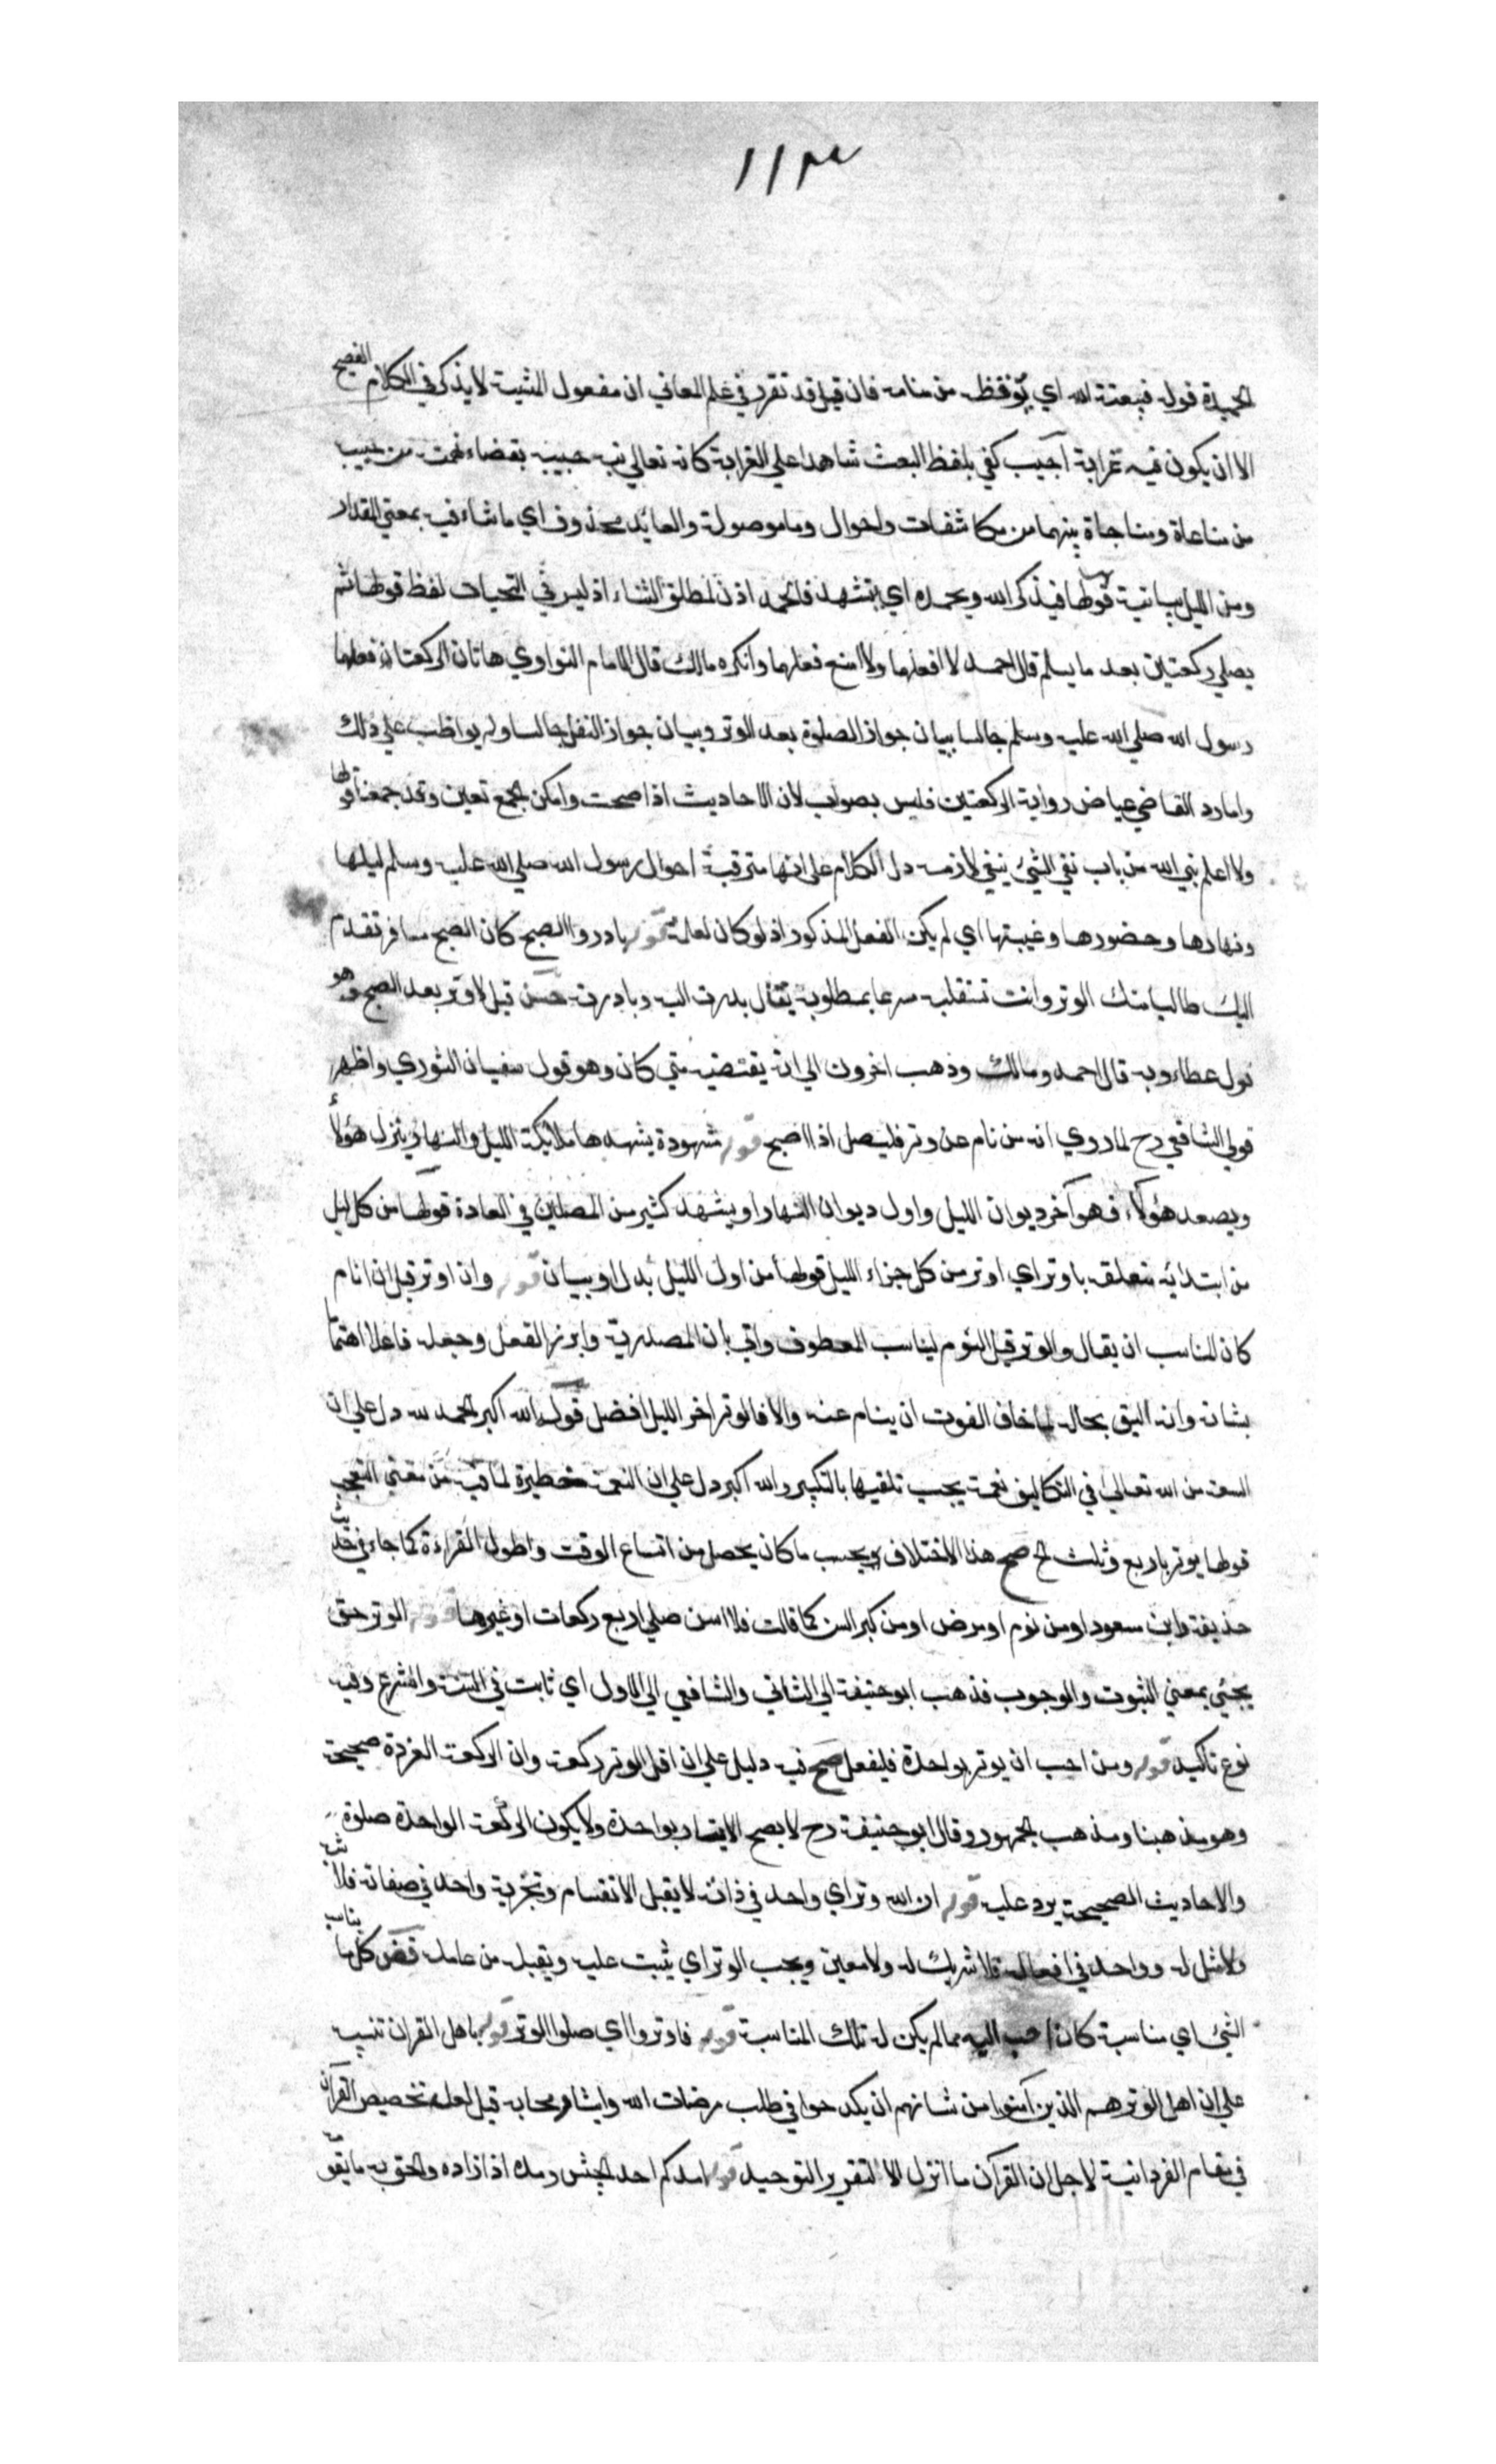 ١١٣
الحميدة قوله فيبعثه الله اي يوقظه من منامه فان قيل قد تقرر في علم المعاني ان مفعول المشية لا يذكر في الكلام الفصيح
الا ان يكون فيه غرابة اجيب كفي بلفظ البعث شاهدا علي الغرابة كانه تعالي نبه حبيبه بقضاء نهمته من حبيب
من مناغاة ومناجاة بينهما من مكاشفات واحوال وما موصولة والعايد محذوف اي ما شاء فيه بمعني المقدار
ومن الليل بيانية قولها فيذكر الله ويحمده اي يتشهد فالحمد اذن لمطلق الثناء اذ ليس في التحيات لفظ قولها ثم
يصلي ركعتين بعد ما يسلم قال احمد لا افعلهما ولا امنع فعلهما وانكره مالك قال الامام النواوي هاتان الركعتان فعلهما
رسول الله صلي الله عليه وسلم جالسا بيان جواز الصلوة بعد الوتر وبيان جواز النفل جالسا ولم يواظب علي ذلك
واما رد القاضي عياض رواية الركعتين فليس بصواب لان الاحاديث اذا صحت وامكن الجمع تعين وقد جمعنا قولها
ولا اعلم نبي الله من باب نفي الشئ بنفي لازمه دل الكلام علي انها مترقبة احوال رسول الله صلي الله عليه وسلم ليلها
ونهارها وحضورها وغيبتها اي لم يكن الفعل المذكور اذ لو كان لعلمته قوله بادروا الصبح كان الصبح مسافر تقدم
اليك طالبا منك الوتر وانت تستقبله مسرعا بمطلوبه يقال بدرت اليه وبادرته حسن قيل لا وتر بعد الصبح وهو
قول عطاء وبه قال احمد ومالك وذهب اخرون الي انه يقضيه متي كان وهو قول سفيان الثوري واظهر
قولي الشافعي رح لما روي انه من نام عن وتر فليصل اذا اصبح قوله مشهودة يشهدها ملايكة الليل والنهار ينزل هؤلاء
ويصعد هؤلاء فهو آخر ديوان الليل واول ديوان النهار او يشهد كثير من المصلين في العادة قولها من كل الليل
من ابتدائية متعلقه باوتر اي اوتر من كل جزاء الليل قولها من اول الليل بدل او بيان قوله وان اوتر قبل ان انام
كان المناسب ان يقال والوتر قبل النوم ليناسب المعطوف واتي بان المصدرية وابرز الفعل وجعله فاعلا اهتماما
بشانه وانه اليق بحاله لما خاف الفوت ان ينام عنه والا فالوتر اخر الليل افضل قوله الله اكبر الحمد لله دل علي ان
السعة من الله تعالي في التكاليف نعمة يجب تلقيها بالتكبير والله اكبر دل علي ان النعمة خطيرة لما فيه من معني التعجب
قولها يوتر باربع وثلث الخ صح هذا الاختلاف بحسب ما كان يحصل من اتساع الوقت واطول القراءة كما جاء في حديث
حذيفة وابن مسعود او من نوم او مرض او من كبر السن كما قالت فلما اسن صلي اربع ركعات او غيرها قوله الوتر حق
يجئي بمعني الثبوت والوجوب فذهب ابو حنيفة الي الثاني والشافعي الي الاول اي ثابت في السنة والشرع وفيه
نوع تاكيد قوله ومن احب ان يوتر بواحدة فليفعل صح فيه دليل علي ان اقل الوتر ركعة وان الركعة الفردة صحيحة
وهو مذهبنا ومذهب الجمهور وقال ابو حنيفة رح لا يصح الايتار بواحدة ولا يكون الركعة الواحدة صلوة
والاحاديث الصحيحة يرد عليه قوله ان الله وتر اي واحد في ذاته لا يقبل الانقسام وتجزية واحد في صفاته فلا شبه
ولا مثل له وواحد في افعاله فلا شريك له ولا معين ويحب الوتر اي يثبت عليه ويقبله من عامله قض كل ما يناسب
الشئ اي مناسبة كان احب اليه مما لم يكن له تلك المناسبة قوله فاوتروا اي صلوا الوتر قوله يا اهل القران تنبيه
علي ان اهل الوتر هم الذين آمنوا من شانهم ان يكدحوا في طلب مرضات الله وايثار محابه قيل لعله تخصيص القرآن
في مقام الفردانية لاجل ان القرآن ما انزل الا لتقرير التوحيد قوله امدكم احد الجيش ومده اذا زاده والحق به ما يقو